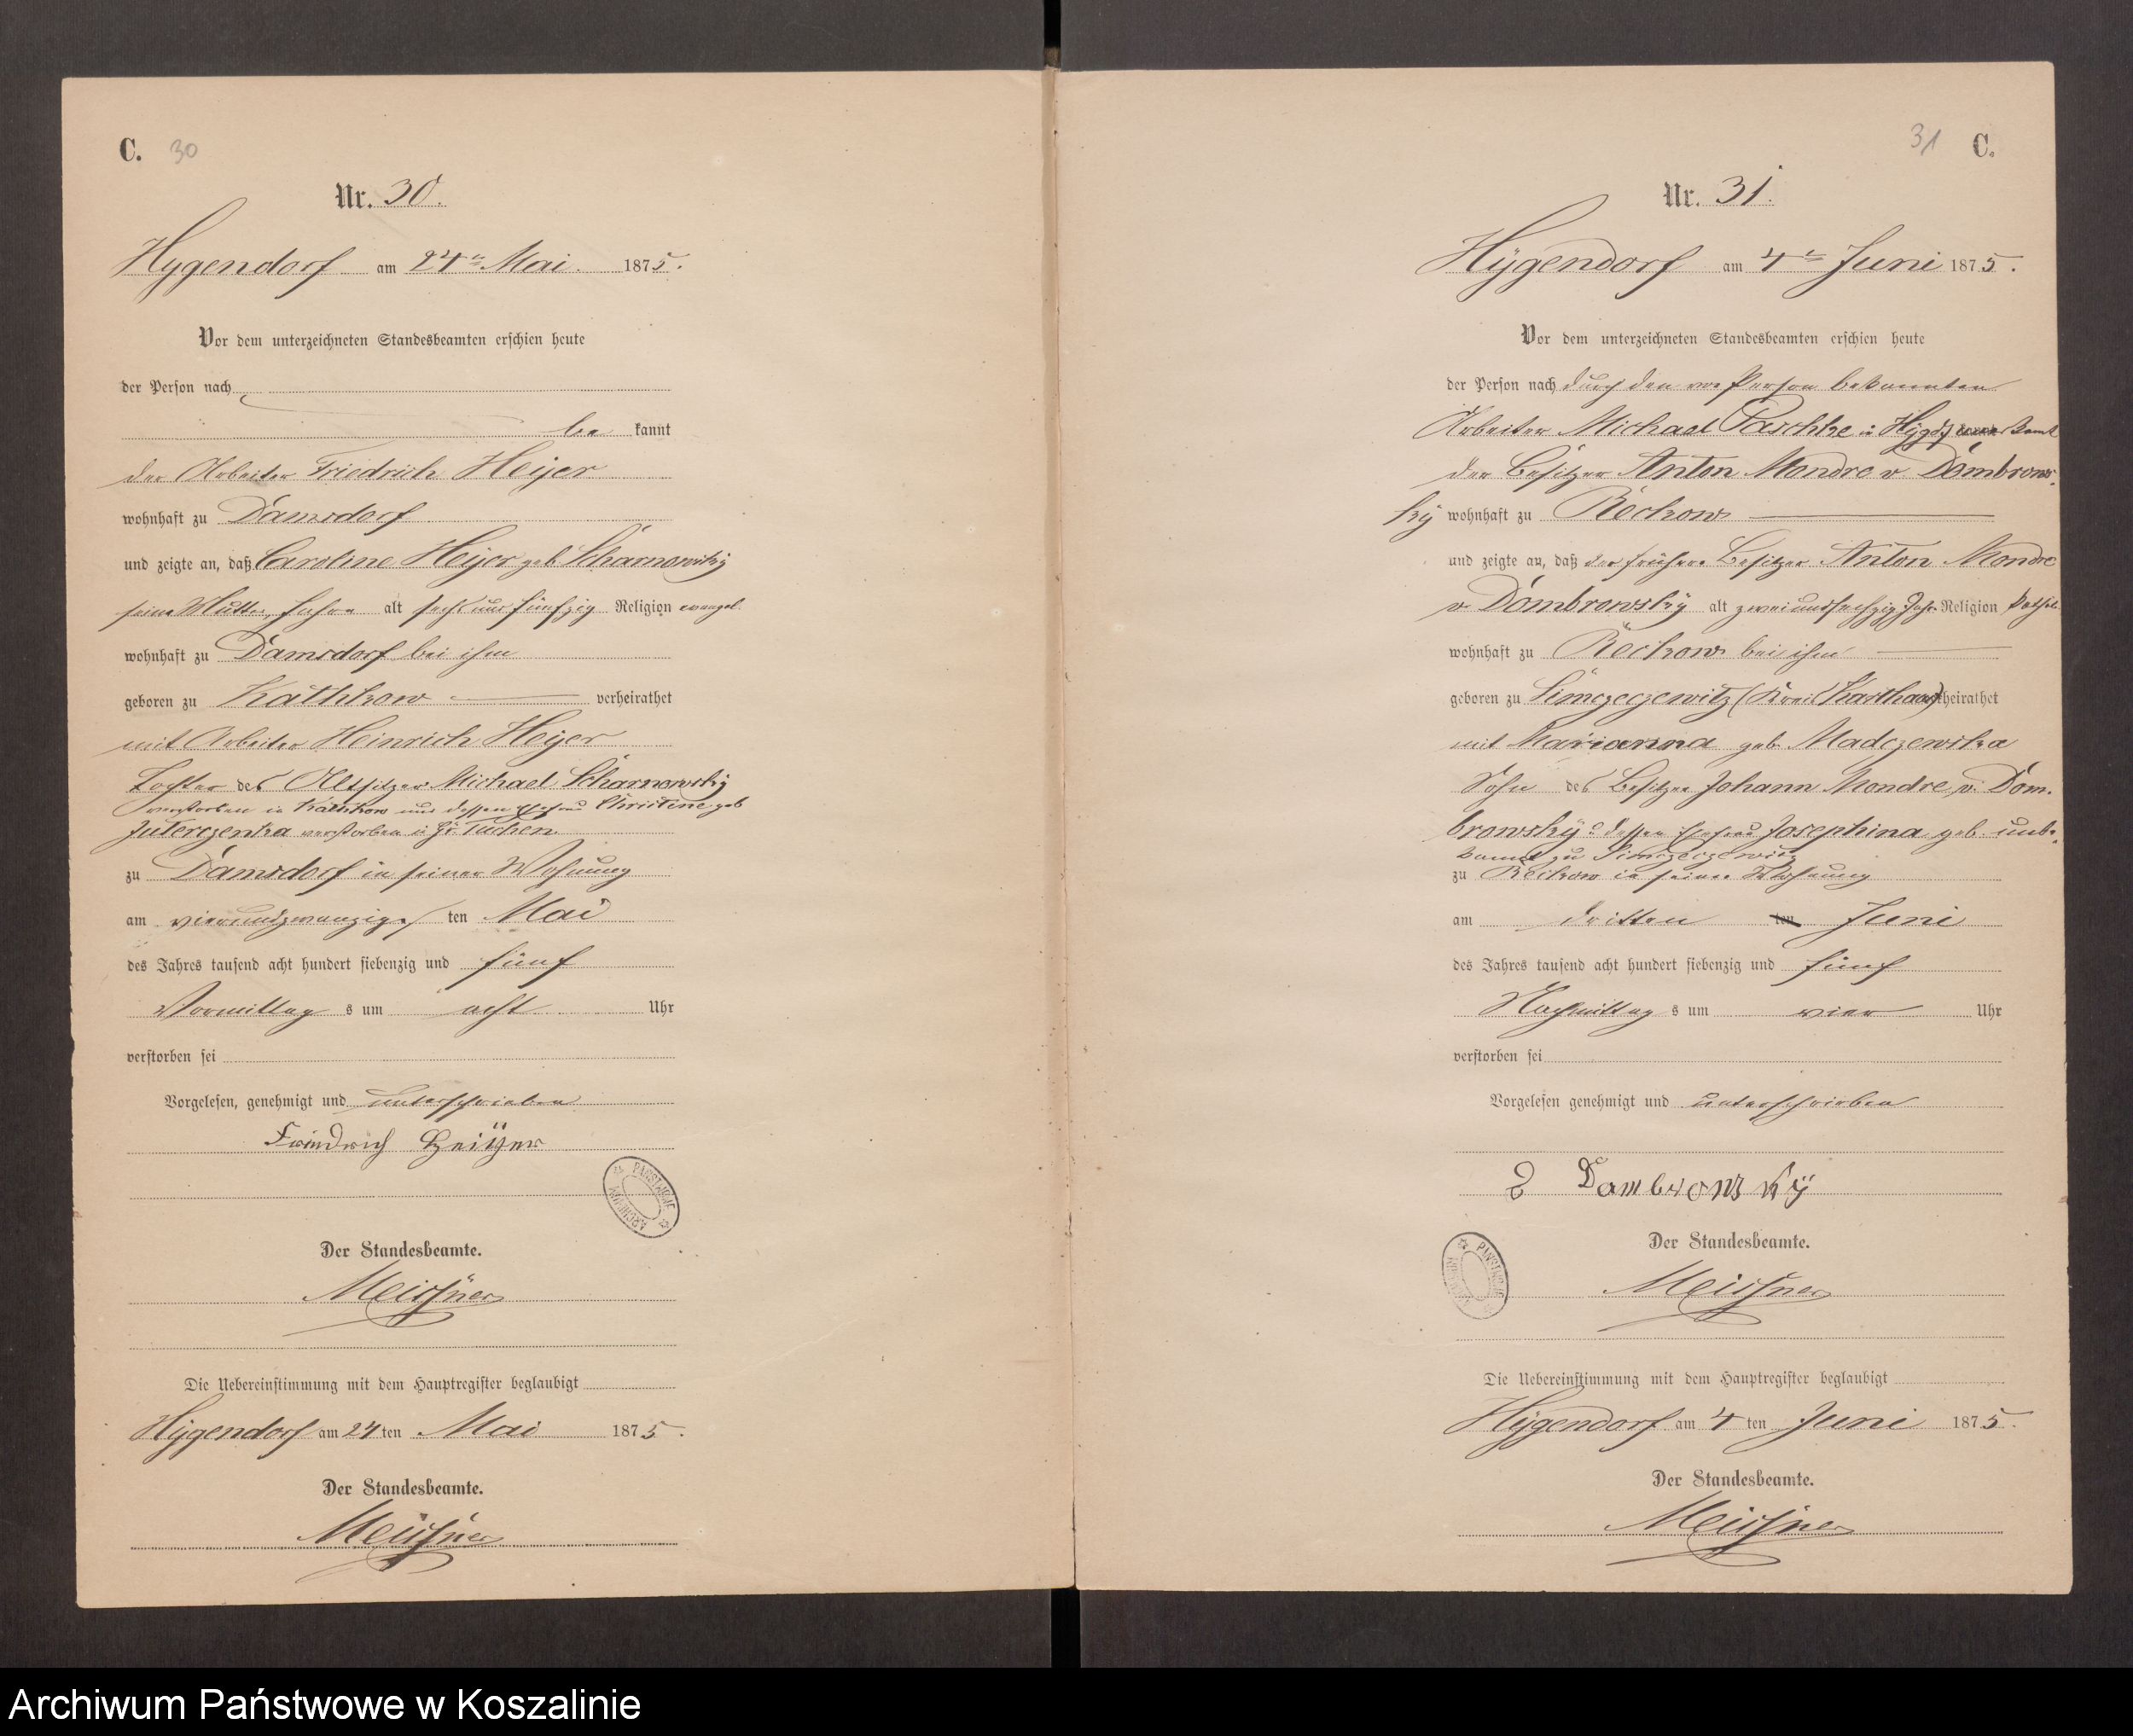 C. 30
Nr. 30.
Hygendorf am 24ten Mai 1875.
Vor dem unterzeichneten Standesbeamten erschien heute
der Person nach
be kannt
der Arbeiter Friedrich Heÿer
wohnhaft zu Damsdorf
und zeigte an, daß Caroline Heÿer geb Scharnowitzÿ
seine Mutter, Jahre alt sechs und fünfzig Religion evangel.
wohnhaft zu Damsdorf bei ihm
geboren zu Kathkow verheirathet
mit Arbeiter Heinrich Heÿer
Tochter des Altsitzer Michael Scharnowskÿ
verstorben in Kathkow und dessen Ehefrau Christine geb
Juterczenka verstorben in Gr. Tuchen.
zu Damsdorf in seiner Wohnung
am vierundzwanzigs ten Mai
des Jahres tausend acht hundert siebenzig und fünf
Vormittag s um acht Uhr
verstorben sei
Vorgelesen, genehmigt und unterschrieben
Friedrich Heiÿer
Der Standesbeamte.
Meissner
Die Uebereinstimmung mit dem Hauptregister beglaubigt
Hÿgendorf am 24 ten Mai 1875.
Der Standesbeamte.
Meissner
31 C.
Nr. 31.
Hÿgendorf am 4ten Juni 1875.
Vor dem unterzeichneten Standesbeamten erschien heute
der Person nach durch den von Person bekannten
Arbeiter Michael Paschke in Hÿgdf kannt
der Besitzer Anton Mondre v Dombrows-
kÿ wohnhaft zu Reckow
und zeigte an, daß der frühere Besitzer Anton Mondre
v Dombrowskÿ alt zweiundsechzig Jahr Religion kathol.
wohnhaft zu Reckow bei ihm
geboren zu Simczeczewitz (Kreis Karthaus) heirathet
mit Marianna geb. Madczewska
Sohn des Besitzer Johann Mondre v. Dom-
browskÿ u dessen Ehefrau Josephina geb. unbe-
kannt zu Simczeczewitz
zu Reckow in seiner Wohnung
am dritten ten Juni
des Jahres tausend acht hundert siebenzig und fünf
Nachmittag s um vier Uhr
verstorben sei
Vorgelesen genehmigt und unterschrieben
Dambrowskÿ
Der Standesbeamte.
Meissner
Die Uebereinstimmung mit dem Hauptregister beglaubigt
Hÿgendorf am 4 ten Juni 1875.
Der Standesbeamte.
Meissner
Archiwum Państwowe w Koszalinie